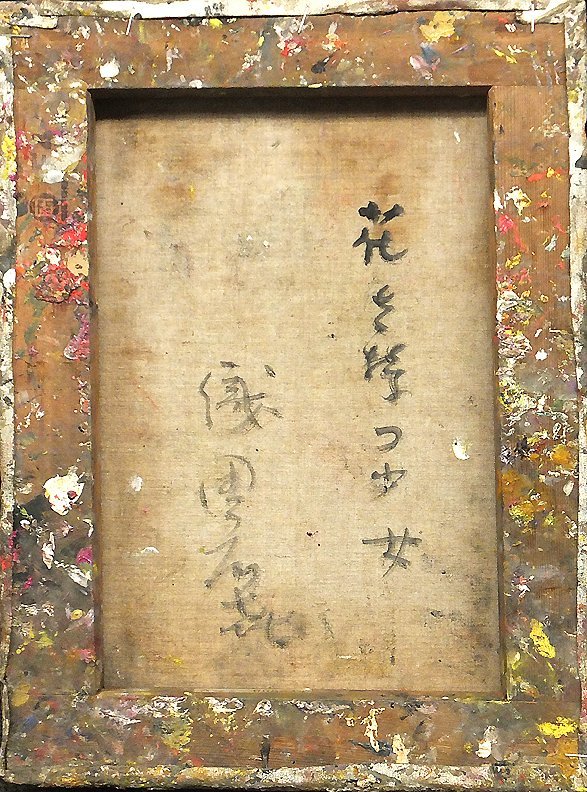 花を つ少女
織田広喜